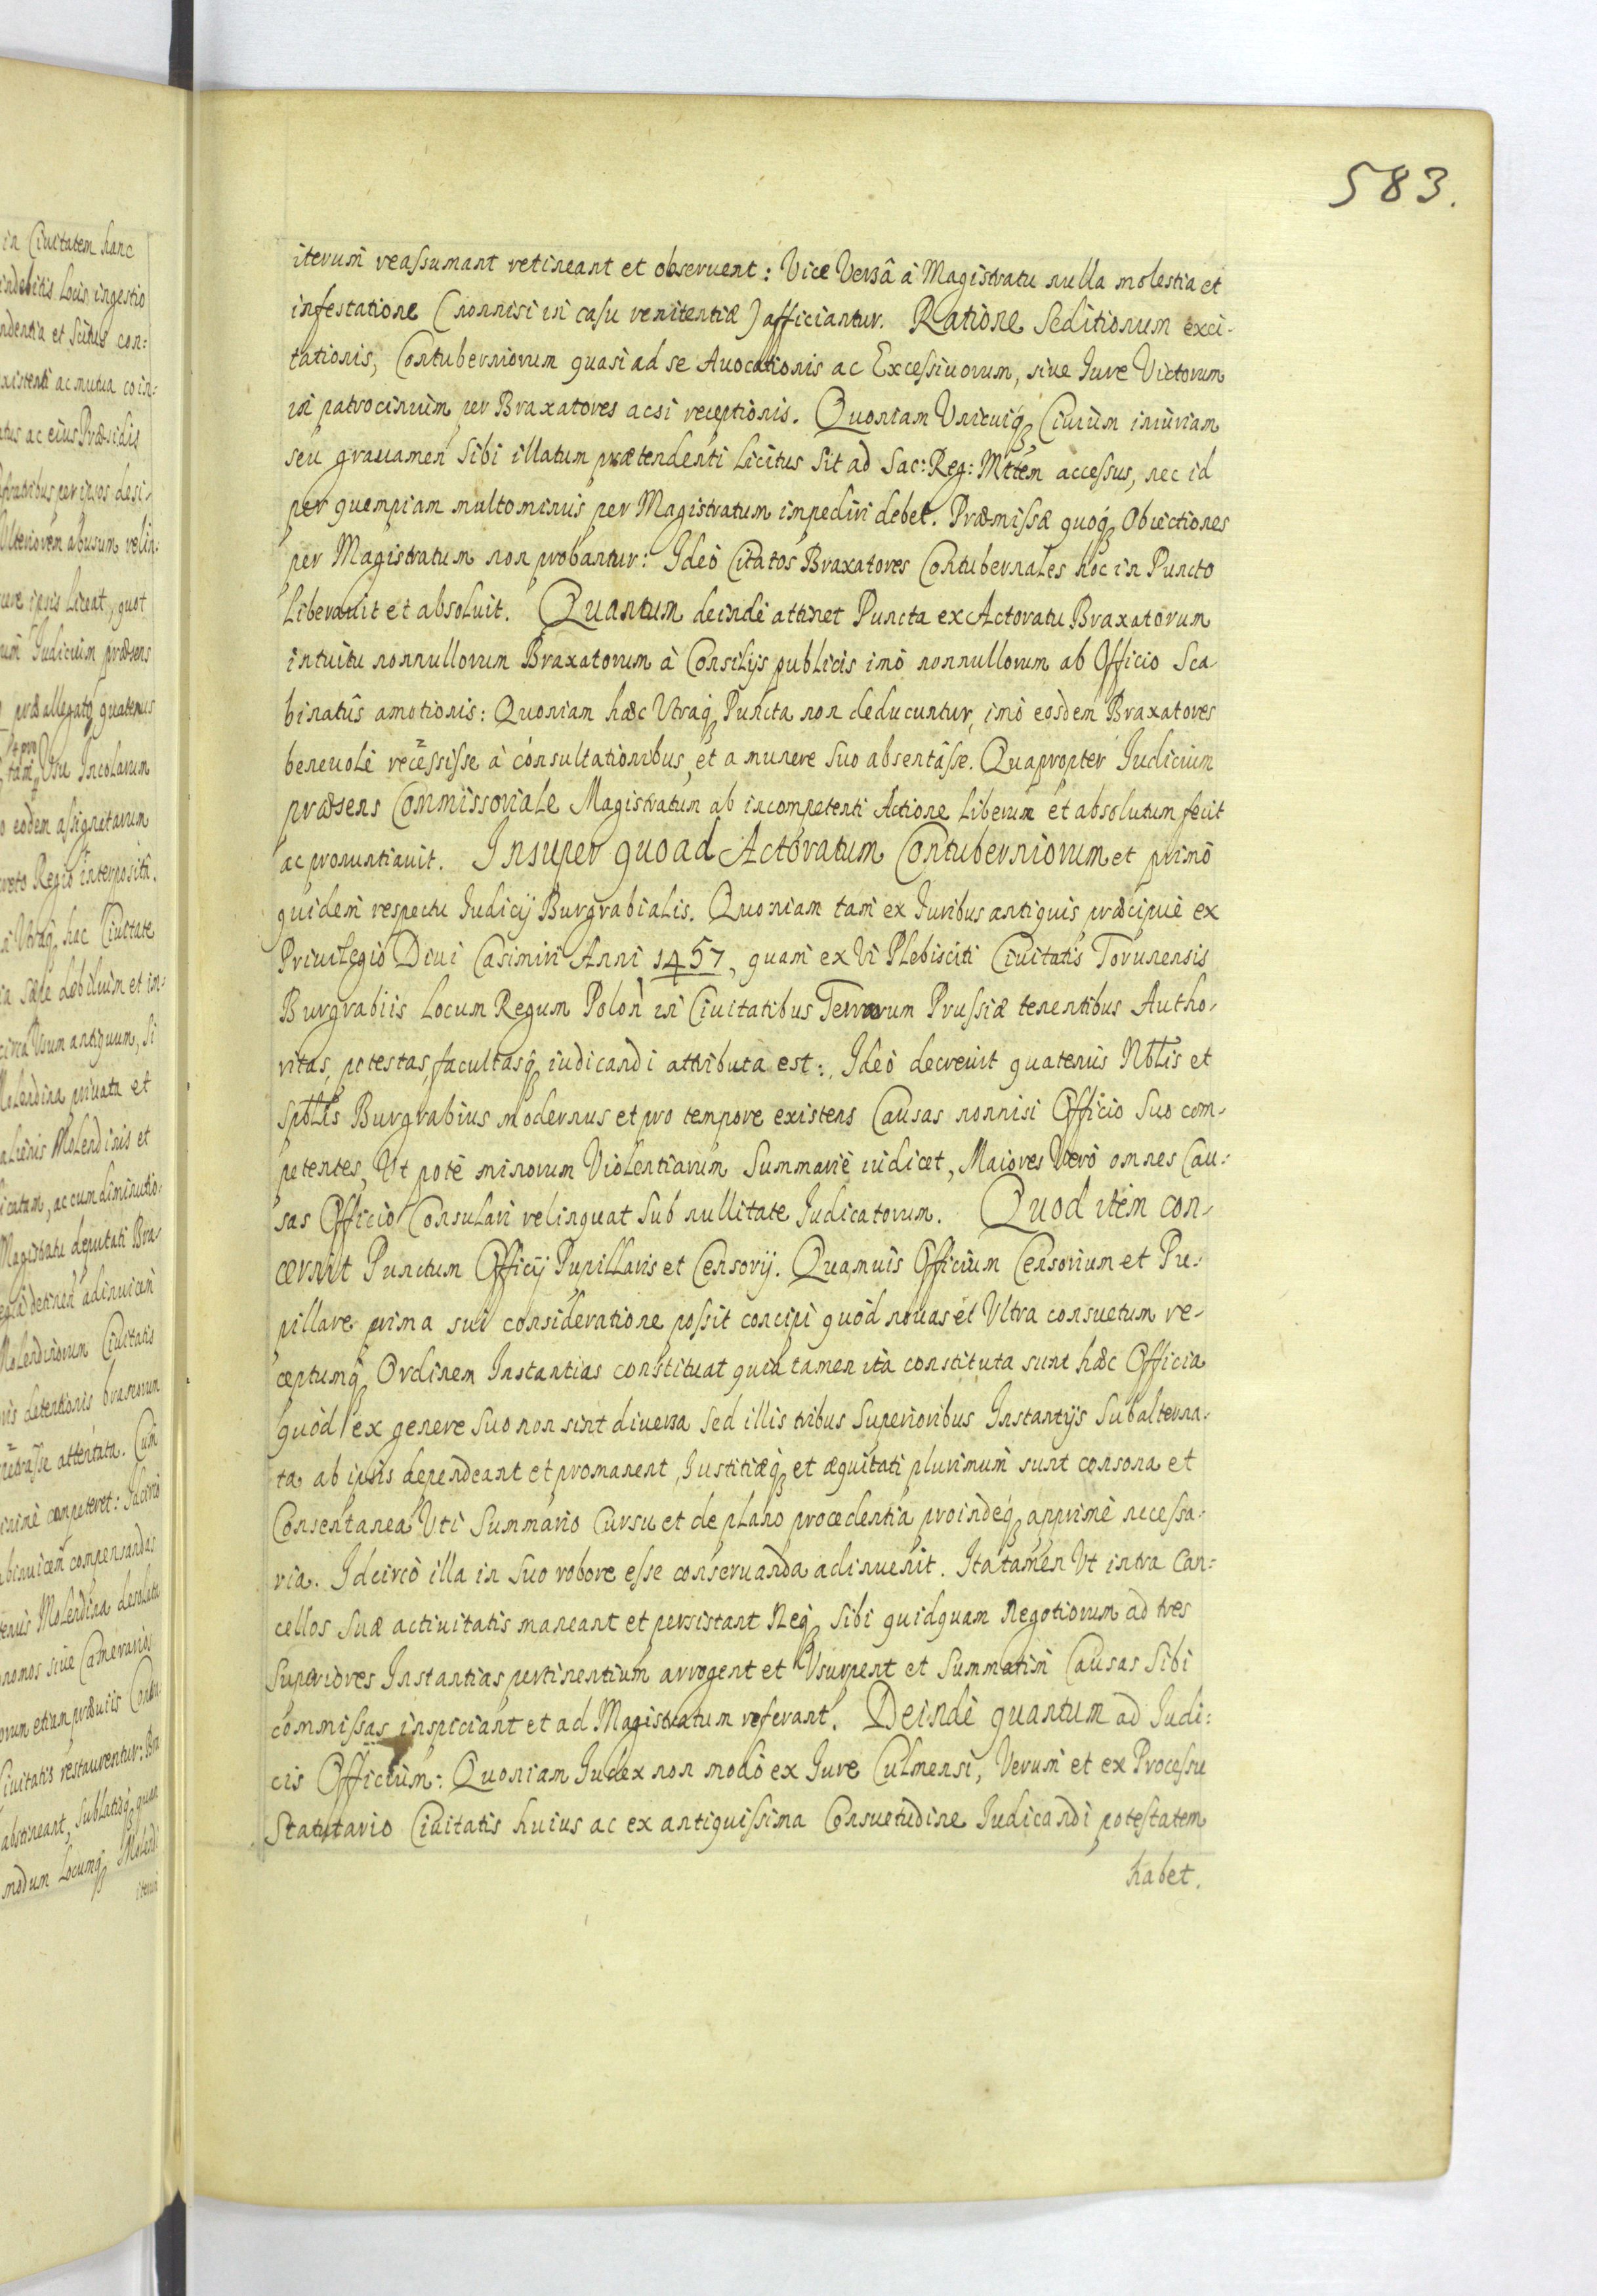 583.
iterum reassumant retineant et obseruent: Vice Versâ à Magistratu nulla molestia et
infestatione (nonnisi in casu renitentiæ) afficiantur. Ratione Seditionum exci-
tationis, Contuberniorum quasi ad se Auocationis ac Excessiuorum, siue Iure Victorum
in patrocinium per Braxatores acsi receptionis. Quoniam Unicuiq Ciuium iniuriam
seu grauamen Sibi illatum prætendenti Licitus Sit ad Sac: Reg: Mttem accessus, nec id
per quempiam multominus per Magistratum impediri debet. Præmissæ quoq Obiectiones
per Magistratum non probantur: Ideò Citatos Braxatores Contubernales hoc in Puncto
Liberauit et absoluit. Quantum deindè attinet Puncta ex Actoratu Braxatorum
intuitu nonnullorum Braxatorum à Consilijs publicis imò nonnullorum ab Officio Sca-
binatûs amotionis: Quoniam hæc Utraq Puncta non deducuntur, imò eosdem Braxatores
beneuolè recessisse à consultationibus, et a munere Suo absentâsse. Quapropter Iudicium
præsens Commissoriale Magistratum ab incompetenti Actione Liberum et absolutum fecit
ac pronuntiauit. Insuper quoad Actoratum Contuberniorum et primò
quidem respectu Iudicij Burgrabialis. Quoniam tam ex Iuribus antiquis præcipuè ex
Priuilegio Diui Casimiri Anni 1457, quam ex Vi Plebisciti Ciuitatis Torunensis
Burgrabiis Locum Regum Polon in Ciuitatibus Terrarum Prussiæ tenentibus Autho-
ritas, potestas, facultasq iudicandi attributa est: Ideò decreuit quatenus Nbtlis et
Spbtlis Burgrabius modernus et pro tempore existens Causas nonnisi Officio Suo com-
petentes, Ut potè minorum Violentiarum Summariè iudicet, Maiores Verò omnes Cau-
sas Officio Consulari relinquat Sub nullitate Iudicatorum. Quod item con-
cernit Punctum Officij Pupillaris et Censorij. Quamuis Officium Censorium et Pu-
pillare prima sui consideratione possit concipi quòd nouas et Ultra consuetum re-
ceptumq Ordinem Instantias constituat quia tamen ita constituta sunt hæc Officia
quòd ex genere Suo non sint diuersa Sed illis tribus Superioribus Instantijs Subalterna-
ta ab ipsis dependeant et promanent, Iustitiæq et æquitati plurimum sunt consona et
Consentanea Uti Summario Cursu et de plano procedentia proindeq apprimè necessa-
ria. Idcircò illa in Suo robore esse conseruanda adinuenit. Ita tamen Ut intra Can-
cellos Suæ actiuitatis maneant et persistant Neq Sibi quidquam Negotiorum ad tres
Superiores Instantias pertinentium arrogent et Usurpent et Summatim Causas Sibi
commissas inspiciant et ad Magistratum referant. Deindè quantum ad Iudi-
cis Officium: Quoniam Iudex non modò ex Iure Culmensi, Verum et ex Processu
Statutario Ciuitatis huius ac ex antiquissima Consuetudine Iudicandi potestatem
habet.